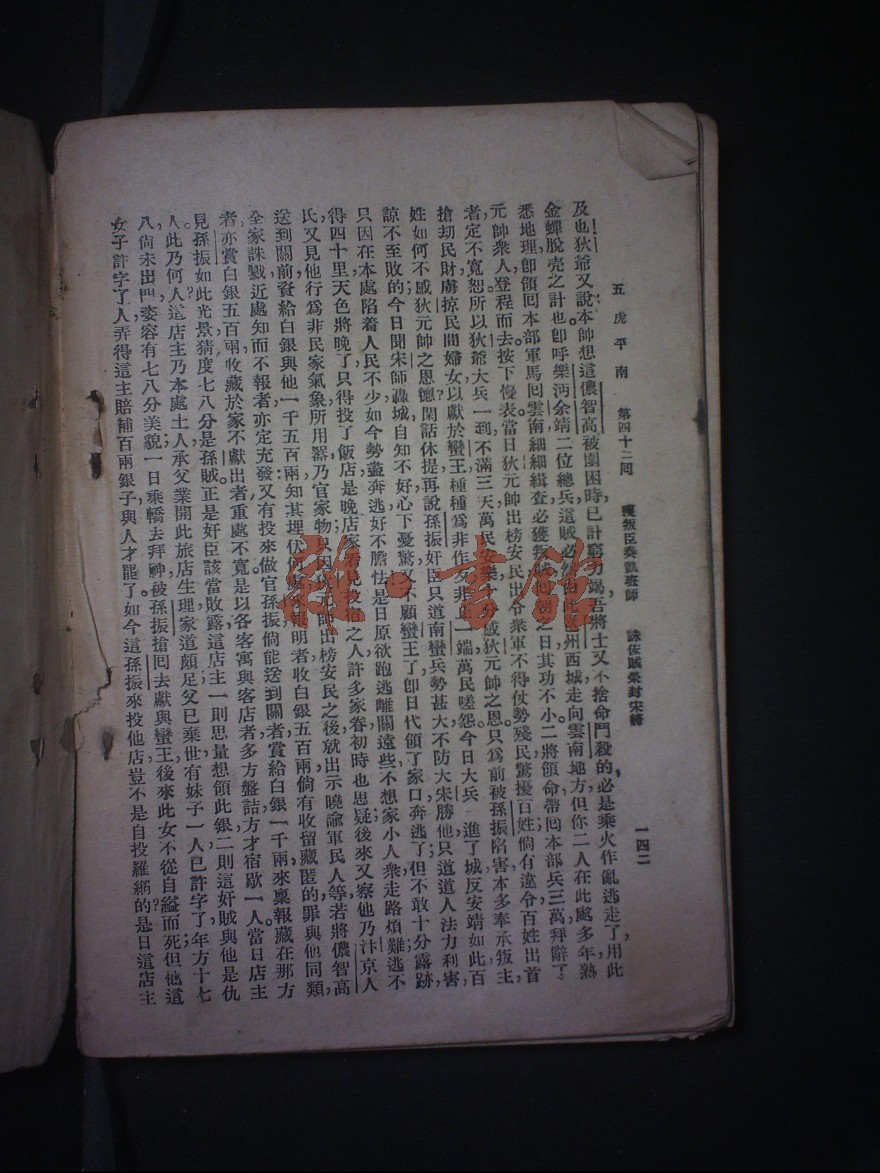 五虎平南 第四十二回 獲叛臣奏凱班師 誅佞賊榮封宋將 一四二
及也狄爺又說:本帥想這儂智高被圍困時已計窮力竭吾將士又不捨命鬥殺的,必是乘火作亂逃走了,用此
金蟬脫壳之計也卽呼樂沔余靖二位總兵這賊必然由此州西城走向雲南地方但你二人在此處多年熟
悉地理卽領囘本部軍馬囘雲南細細緝查必獲叛賊他到之日其功不小二將領命帶囘本部兵三萬拜辭了
元帥衆人登程而去按下慢表當日狄元帥出榜安民出令衆軍不得仗勢殘民驚擾百姓倘有違令百姓出首
者,定不寬恕所以狄爺大兵一到,不滿三天萬民安樂感狄元帥之恩只爲前被孫振陷害本多奉承叛主,
搶刧民財虜掠民間婦女以獻於蠻王種種爲非作歹非止一端萬民嗟怨今日大兵一進了城反安靖如此百
姓如何不感狄元帥之恩德閑話休提再說孫振奸臣只道南蠻兵勢甚大不防大宋勝他只道道人法力利害,
諒不至敗的今日聞宋師轟城自知不好心下憂驚又不顧蠻王了卽日代領了家口奔逃了;但不敢十分露跡,
只因在本處陷着人民不少如今勢盡奔逃好不膽怯是日原欲跑逃離關遠些不想家小人衆走路煩難逃不
得四十里天色將晚了只得投了飯店是晚店家看見投宿之人許多家眷初時也思疑後來又察他乃汴京人
氏又見他行爲非民家氣象所用器乃官家物只因狄元帥出榜安民之後就出示曉諭軍民人等若將儂智高
送到關前賞給白銀與他一千五百兩知其埋伏何處來報明者收白銀五百兩倘有收留藏匿的罪與他同類,
全家誅戮近處知而不報者亦定充發又有投來做官孫振倘能送到關者賞給白銀一千兩來稟報藏在那方
者亦賞白銀五百兩收藏於家不獻出者重處不寬是以各客寓與客店者多方盤詰方才宿歇一人當日店主
見孫振如此光景猜度七八分是孫賊正是奸臣該當敗露這店主一則思量想領此銀二則這奸賊與他是仇
人此乃何人?這店主乃本處土人承父業開此旅店生理家道頗足父已棄世有妹子一人已許字了年方十七
八尙未出門姿容有七八分美貌一日乘轎去拜神被孫振搶囘去獻與蠻王後來此女不從自縊而死但他這
女子許字了人弄得這主賠補百兩銀子與人才罷了如今這孫振來投他店豈不是自投羅網的是日這店主